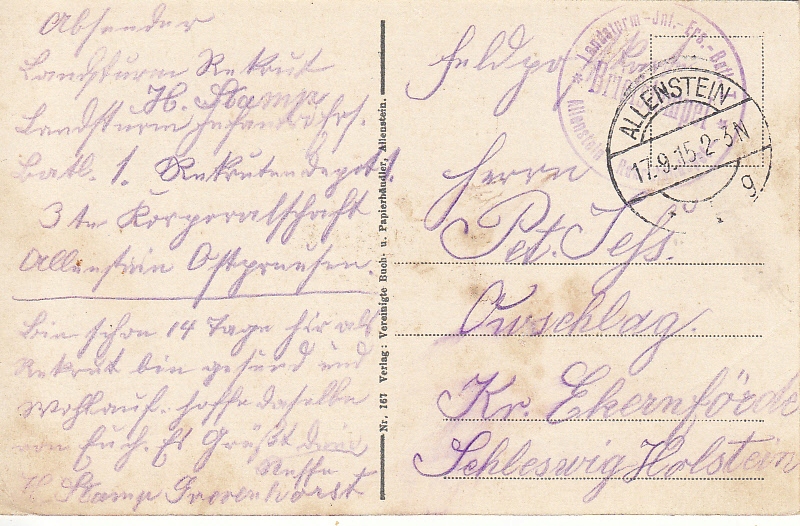 Absender
Landsturm Rekrut
H. Stamp
Landsturm Infanterie Ers.
Batl. 1. Rekrutendepot 1.
3 te Korporalschaft
Allenstein Ostpreusen.
Bin schon 14 Tage hir als
Rekrut bin gesund und
Wohlauf. hoffe daselbe
von Euch. Es Grüßt dein
Neffe
H Stamp
Nr. 167 Verlag: Vereinigte Buch- u. Papierhändler, Allenstein.
Feldpostkarte
Landsturm-Inf.-Ers.-Batl.
Briefstempel
Allenstein
ALLENSTEIN
17.9.15.2-3N
g
Herrn
Pet. Jess.
Owschlag.
Kr. Ekernförde
Schleswig Holstein